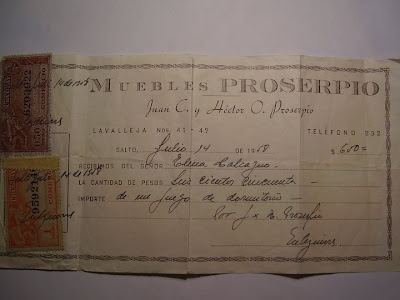 MUEBLES PROSERPIO
Juan C. y Héctor O. Proserpio
LAVALLEJA Nos 41 - 47 TELÉFONO 932
SALTO, Julio 14 de 1958 $
RECIBIMOS DEL SEÑOR Elena Calcagno
LA CANTIDAD DE PESOS Seis cientos cincuenta
IMPORTE de un juego de dormitorio
Por J. y H. Proserpio
620922
959214